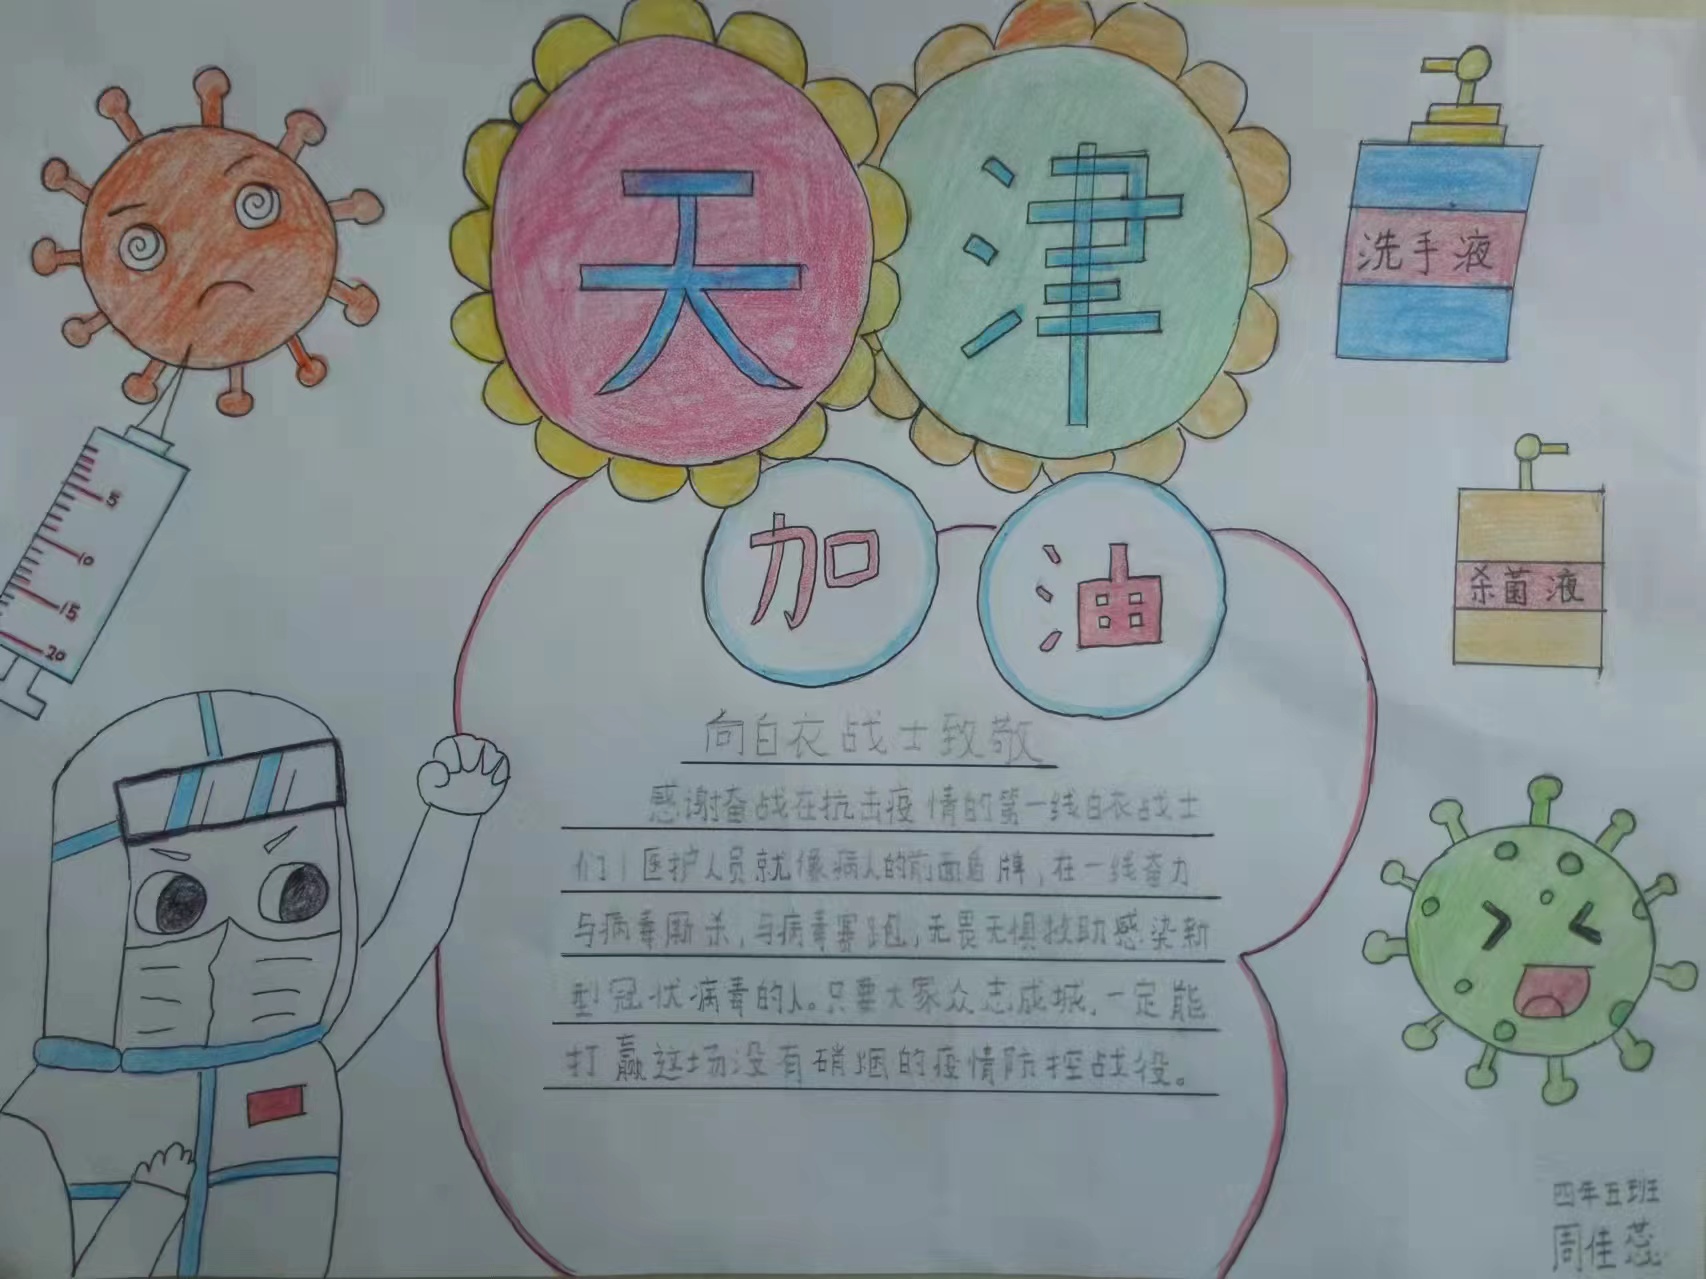 天津
加油
洗手液
杀菌液
5
10
15
20
向白衣战士致敬
感谢奋战在抗击疫情的第一线白衣战士
们！医护人员就像病人的前面盾牌，在一线奋力
与病毒厮杀，与病毒赛跑，无畏无惧救助感染新
型冠状病毒的人。只要大家众志成城，一定能
打赢这场没有硝烟的疫情防控战役。
四年五班
周佳蕊